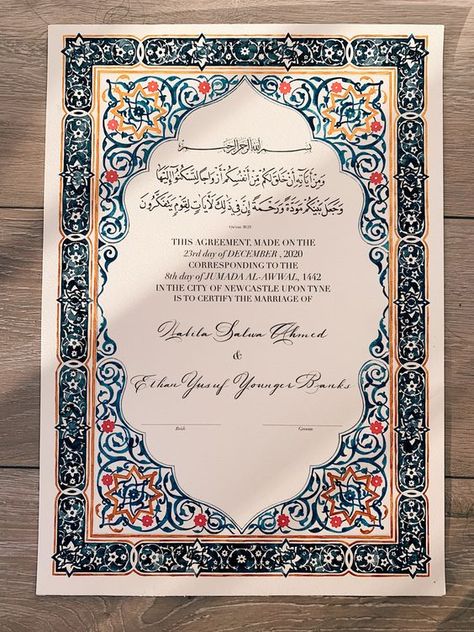 بسم الله الرحمن الرحيم
وَمِنْ آيَاتِهِ أَنْ خَلَقَ لَكُم مِّنْ أَنفُسِكُمْ أَزْوَاجًا لِّتَسْكُنُوا إِلَيْهَا
وَجَعَلَ بَيْنَكُم مَّوَدَّةً وَرَحْمَةً إِنَّ فِي ذَٰلِكَ لَآيَاتٍ لِّقَوْمٍ يَتَفَكَّرُونَ
THIS AGREEMENT, MADE ON THE
23rd day of DECEMBER , 2020
CORRESPONDING TO THE
8th day of JUMADA AL-AWWAL, 1442
IN THE CITY OF NEWCASTLE UPON TYNE
IS TO CERTIFY THE MARRIAGE OF
Nabila Salwa Ahmed
&
Ethan Yusuf Younger Banks
Bride Groom